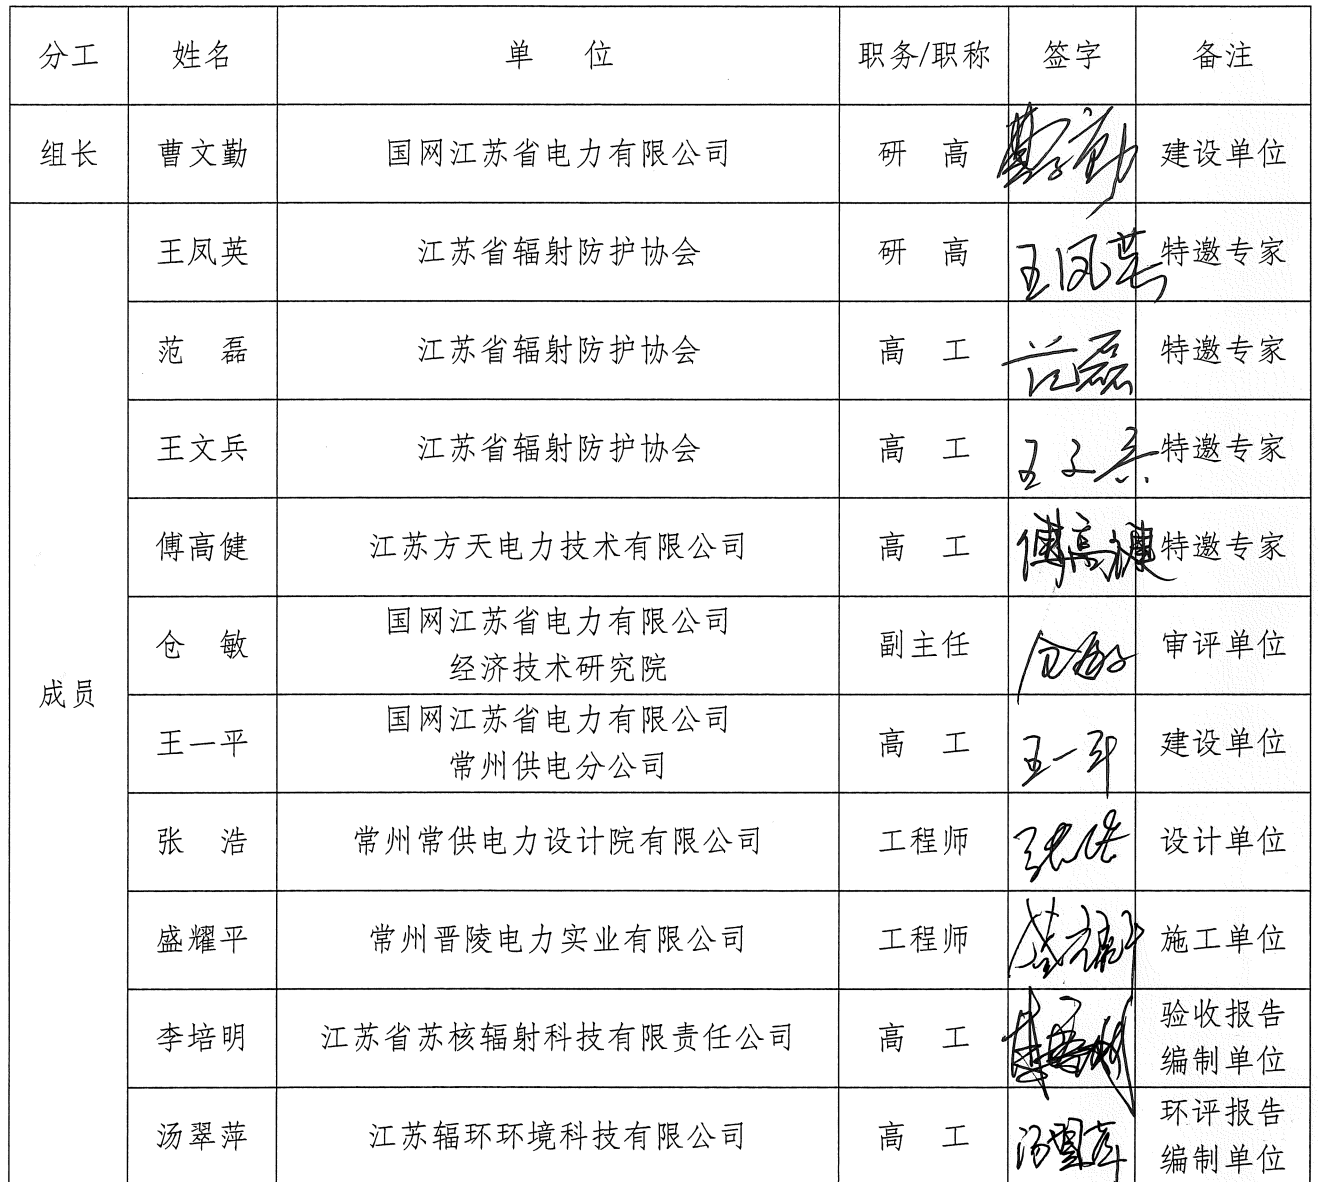 分工 姓名 单 位 职务/职称 签字 备注
组长 曹文勤 国网江苏省电力有限公司 研 高 建设单位
王凤英 江苏省辐射防护协会 研 高 王凤英 特邀专家
范 磊 江苏省辐射防护协会 高 工 范磊 特邀专家
王文兵 江苏省辐射防护协会 高 工 王文兵 特邀专家
傅高健 江苏方天电力技术有限公司 高 工 傅高健 特邀专家
国网江苏省电力有限公司
仓 敏 副主任 仓敏 审评单位
经济技术研究院
成员
国网江苏省电力有限公司
王一平 高 工 王一平 建设单位
常州供电分公司
张 浩 常州常供电力设计院有限公司 工程师 张浩 设计单位
盛耀平 常州晋陵电力实业有限公司 工程师 盛耀平 施工单位
验收报告
李培明 江苏省苏核辐射科技有限责任公司 高 工
编制单位
环评报告
汤翠萍 江苏辐环环境科技有限公司 高 工 汤翠萍
编制单位